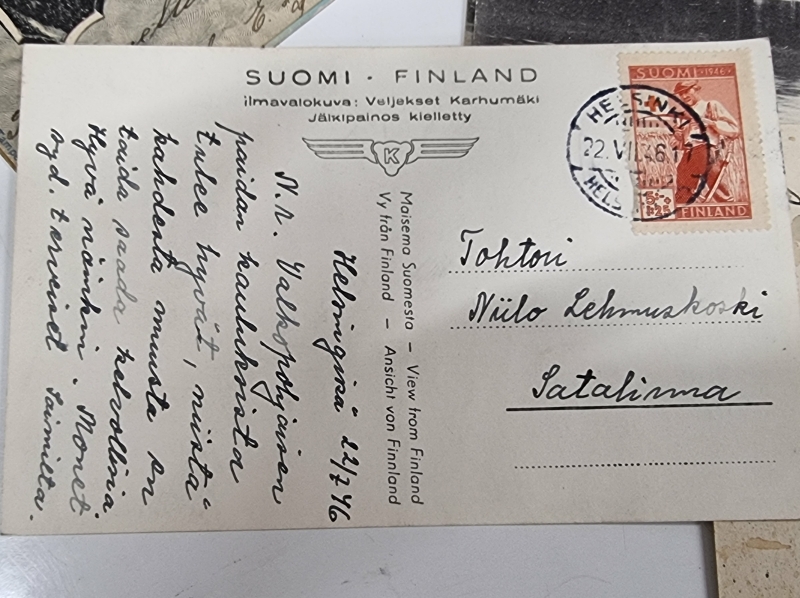 SUOMI - FINLAND
ilmavalokuva: Veljekset Karhumäki
Jälkipainos kielletty
K
Maisema Suomesta – View from Finland
Vy från Finland – Ansicht von Finnland
Helsingissä 22/7 46
N.s. Valkopohjaisen
paidan kauluksista
tulee hyvät, niistä
kahdesta muusta en
taida saada kelvollisia
Hyvä näinkin. Monet
syd. terveiset Saimilta.
SUOMI 1946
5+
1:25
FINLAND
HELSINKI
22.VII.46.17
HELS
Tohtori
Niilo Lehmuskoski
Satalinna